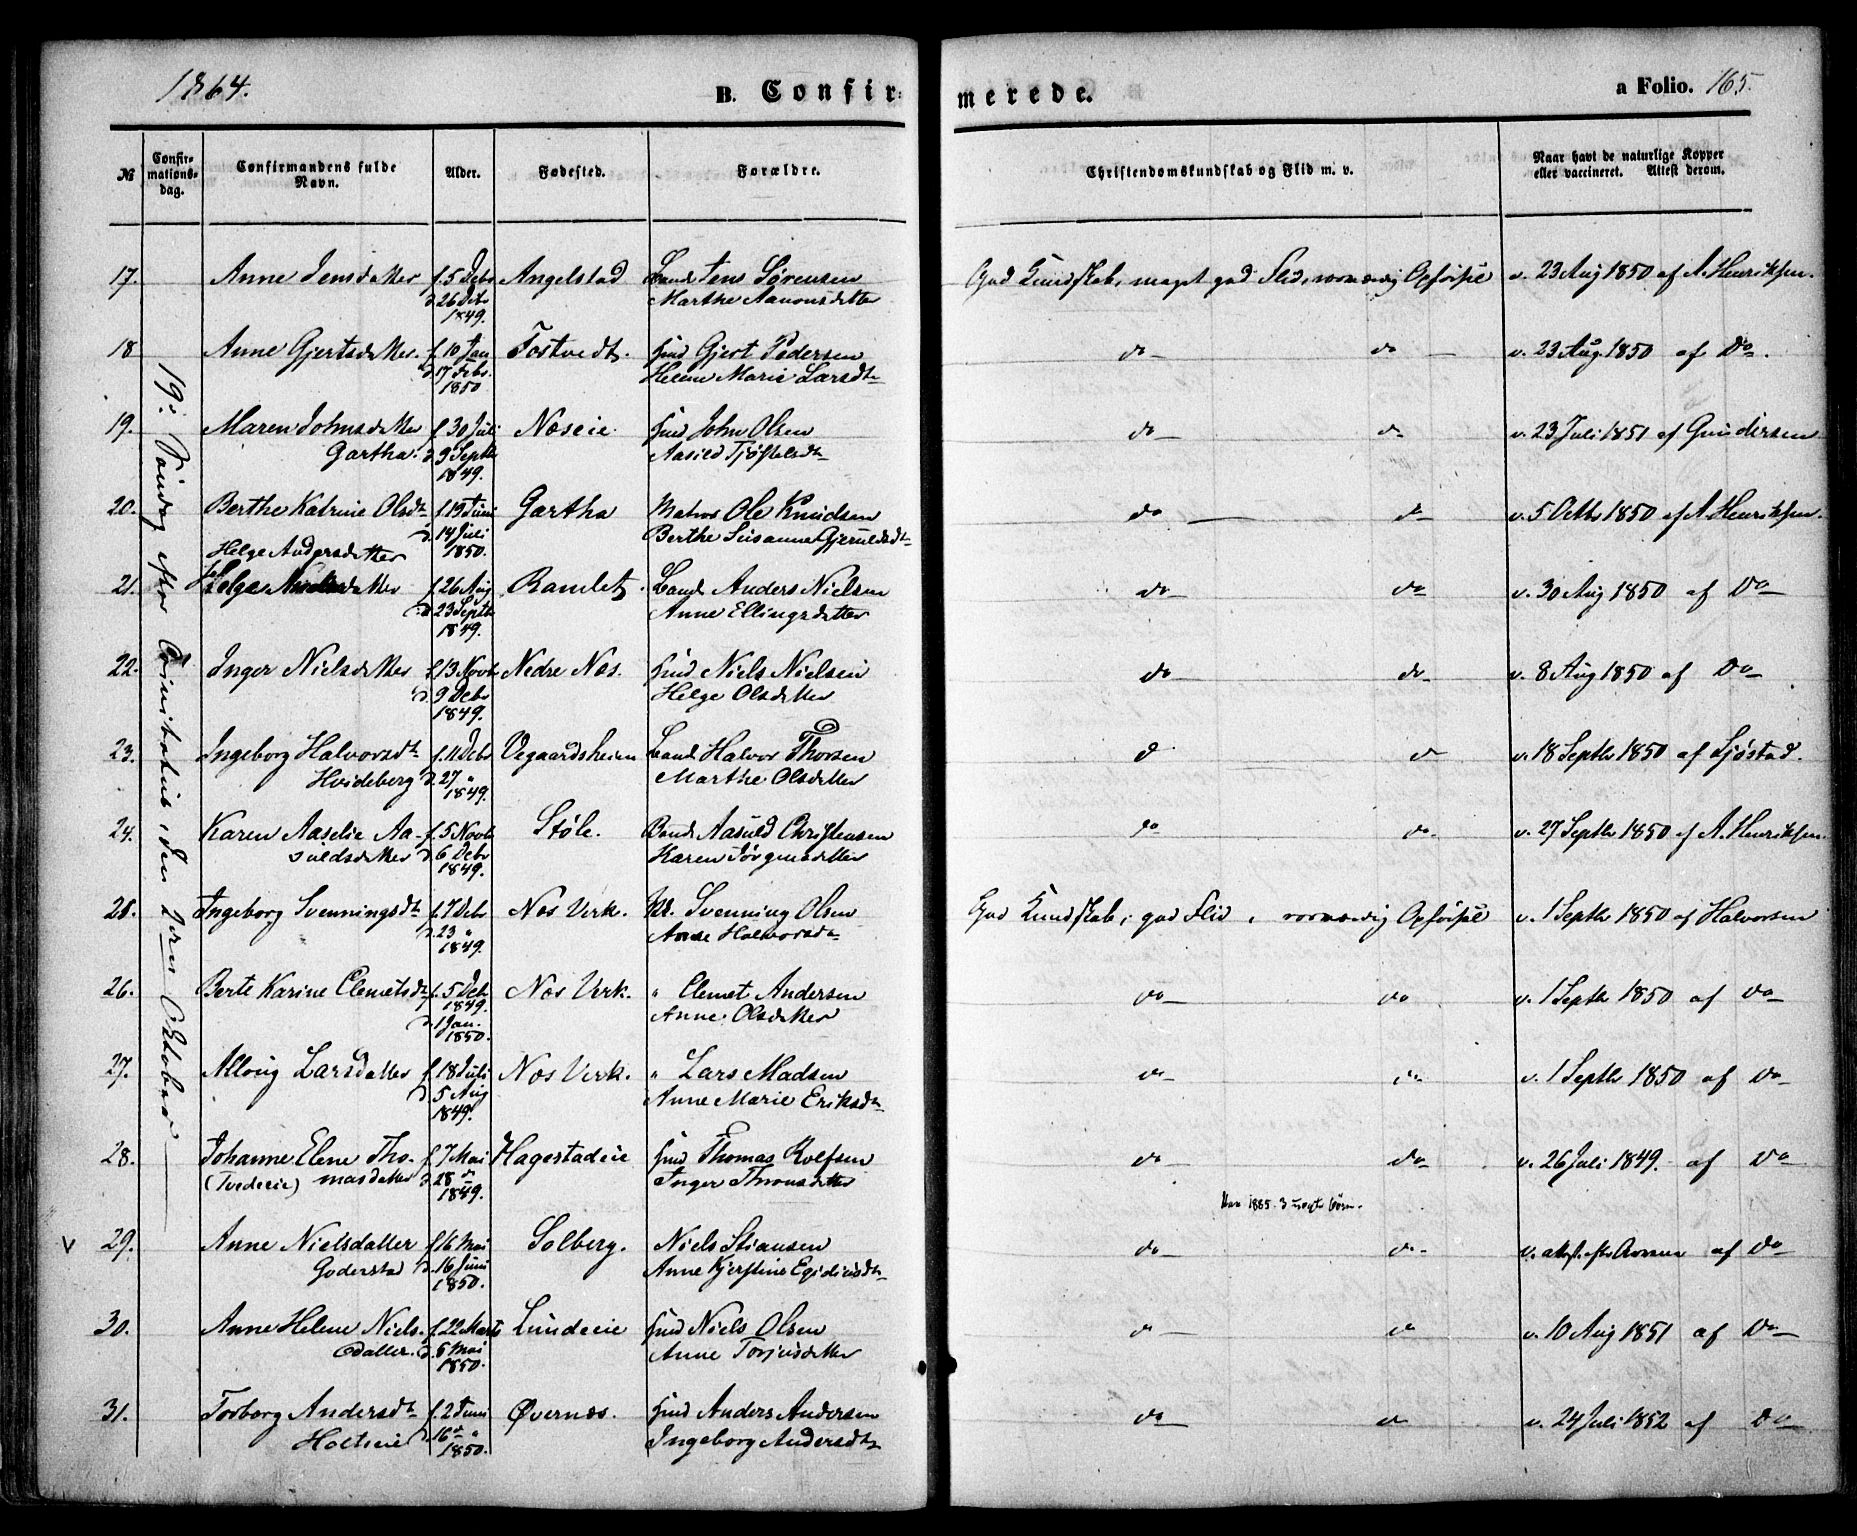 1864.
B. Confir-
merede.
a Folio. 165.
№
Confir-
mations-
dag.
Confirmandens fulde
Navn.
Alder.
Fødested.
Forældre.
Christendomskundskab og Flid m. v.
Naar havt de naturlige Kopper
eller vaccineret. Attest derom.
19: Søndag efter Trinitatis, den 2den October
17. Anne Jensdatter f. 5 Debr Angelstad Gaard Jens Sørensen God Kundskab, meget god Flid, sædvanlig Opførsel v. 23 Aug 1850 af A. Henriksen.
d. 26 Debr Marthe Aanonsdatter
1849.
18 Anne Gjertsdatter f. 10 Jan Tostvedt. Hmd Gjert Pedersen do do v. 23 Aug. 1850 af Do.
d. 17 Febr. Helene Marie Larsdtr
1850
19. Maren Johnsdatter f. 30 Juli Næseie. Hmd John Olsen do do v. 23 Juli 1851 af Gundersen
Gartha. d. 9 Septbr Aasild
1849.
20. Berthe Katrine Olsdtr f. 19 Juni Gartha Matros Ole Knudsen do do v. 5 Octbr 1850 af A. Henriksen.
d. 14 Juli Berthe Susanne Gjeruldsdtr
Helge Andersdatter 1850.
21. Helga f. 26 Aug Ramlet. Gaard Anders Nielsen do do v. 30 Aug 1850 af Do
d. 23 Septbr Anne Ellingsdatter
1849.
22. Inger Nielsdatter f. 13 Novbr Nedre Næs. Hmd Niels Nielsen do do v. 8 Aug 1850 af Do
d. 9 Debr Helge Olsdatter
1849.
23. Ingeborg Halvorsdtr f. 11 Debr Vegaardsheien Gaard Halvor Thorsen d v. 18 Septbr 1850 af Sjøstad.
Hvideberg d. 27 " Marthe Olsdatter
1849.
24. Karen Aaselie Aa- f. 5 Novbr Støle. Gaard Aasuld Christensen do do v. 27 Septbr 1850 af A. Henriksen
suldsdatter d. 6 Debr Karen Jørgensdatter
1849.
25. Ingeborg Svenningsdtr f. 7 Debr Næs Verk. Svenning Olsen God Kundskab, god Flid, sædvanlig Opførsel v. 1 Septbr 1850 af Halvorsen
d. 23 " Anne Halvorsdtr
1849.
26. Berte Karine Clemetsdtr f. 5 Debr Næs Verk. " Clemet Andersen do do v. 1 Septbr 1850 af do
1849. Anne Olsdatter
d. 1 Jan.
1850.
27. Allovig Larsdatter f. 18 Juli Næs Verk. " Lars Madsen do v. 1 Septbr 1850 af do
d. 5 Aug Anne Marie Eriksdtr
1849.
28. Johanne Elene Tho- f. 7 Mai Hagestadeie Hmd Thomas Rolfsen do do v. 26 Juli 1849. af Do
(Tvedeeie) masdatter d. 28 Inger Thronsdatter
1849.
Har 1885. 3 uægte børn.
V 29. Anne Nielsdatter f. 16 Mai Solberg. Niels Stiansen do do v. af do
Goderstad d. 16 Juni Anne Kjerstine Egidiusdtr
1850.
30. Anne Helene Niels- f. 22 Marts Lundeeie Hmd Niels Olsen do do v. 10 Aug 1851 af Do
datter. d. 5 Mai Anne Torjusdatter
1850.
31. Torborg Andersdtr f. 2 Juni Øvernæs. Hmd Anders Andersen do do v. 24 Juli 1852 af Do
Holtseie d. 16 Ingeborg Andersdtr
1850.